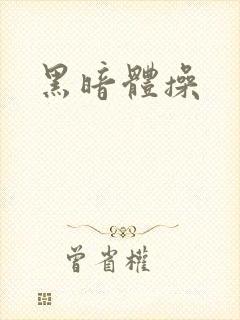 黑暗體操
曾省權